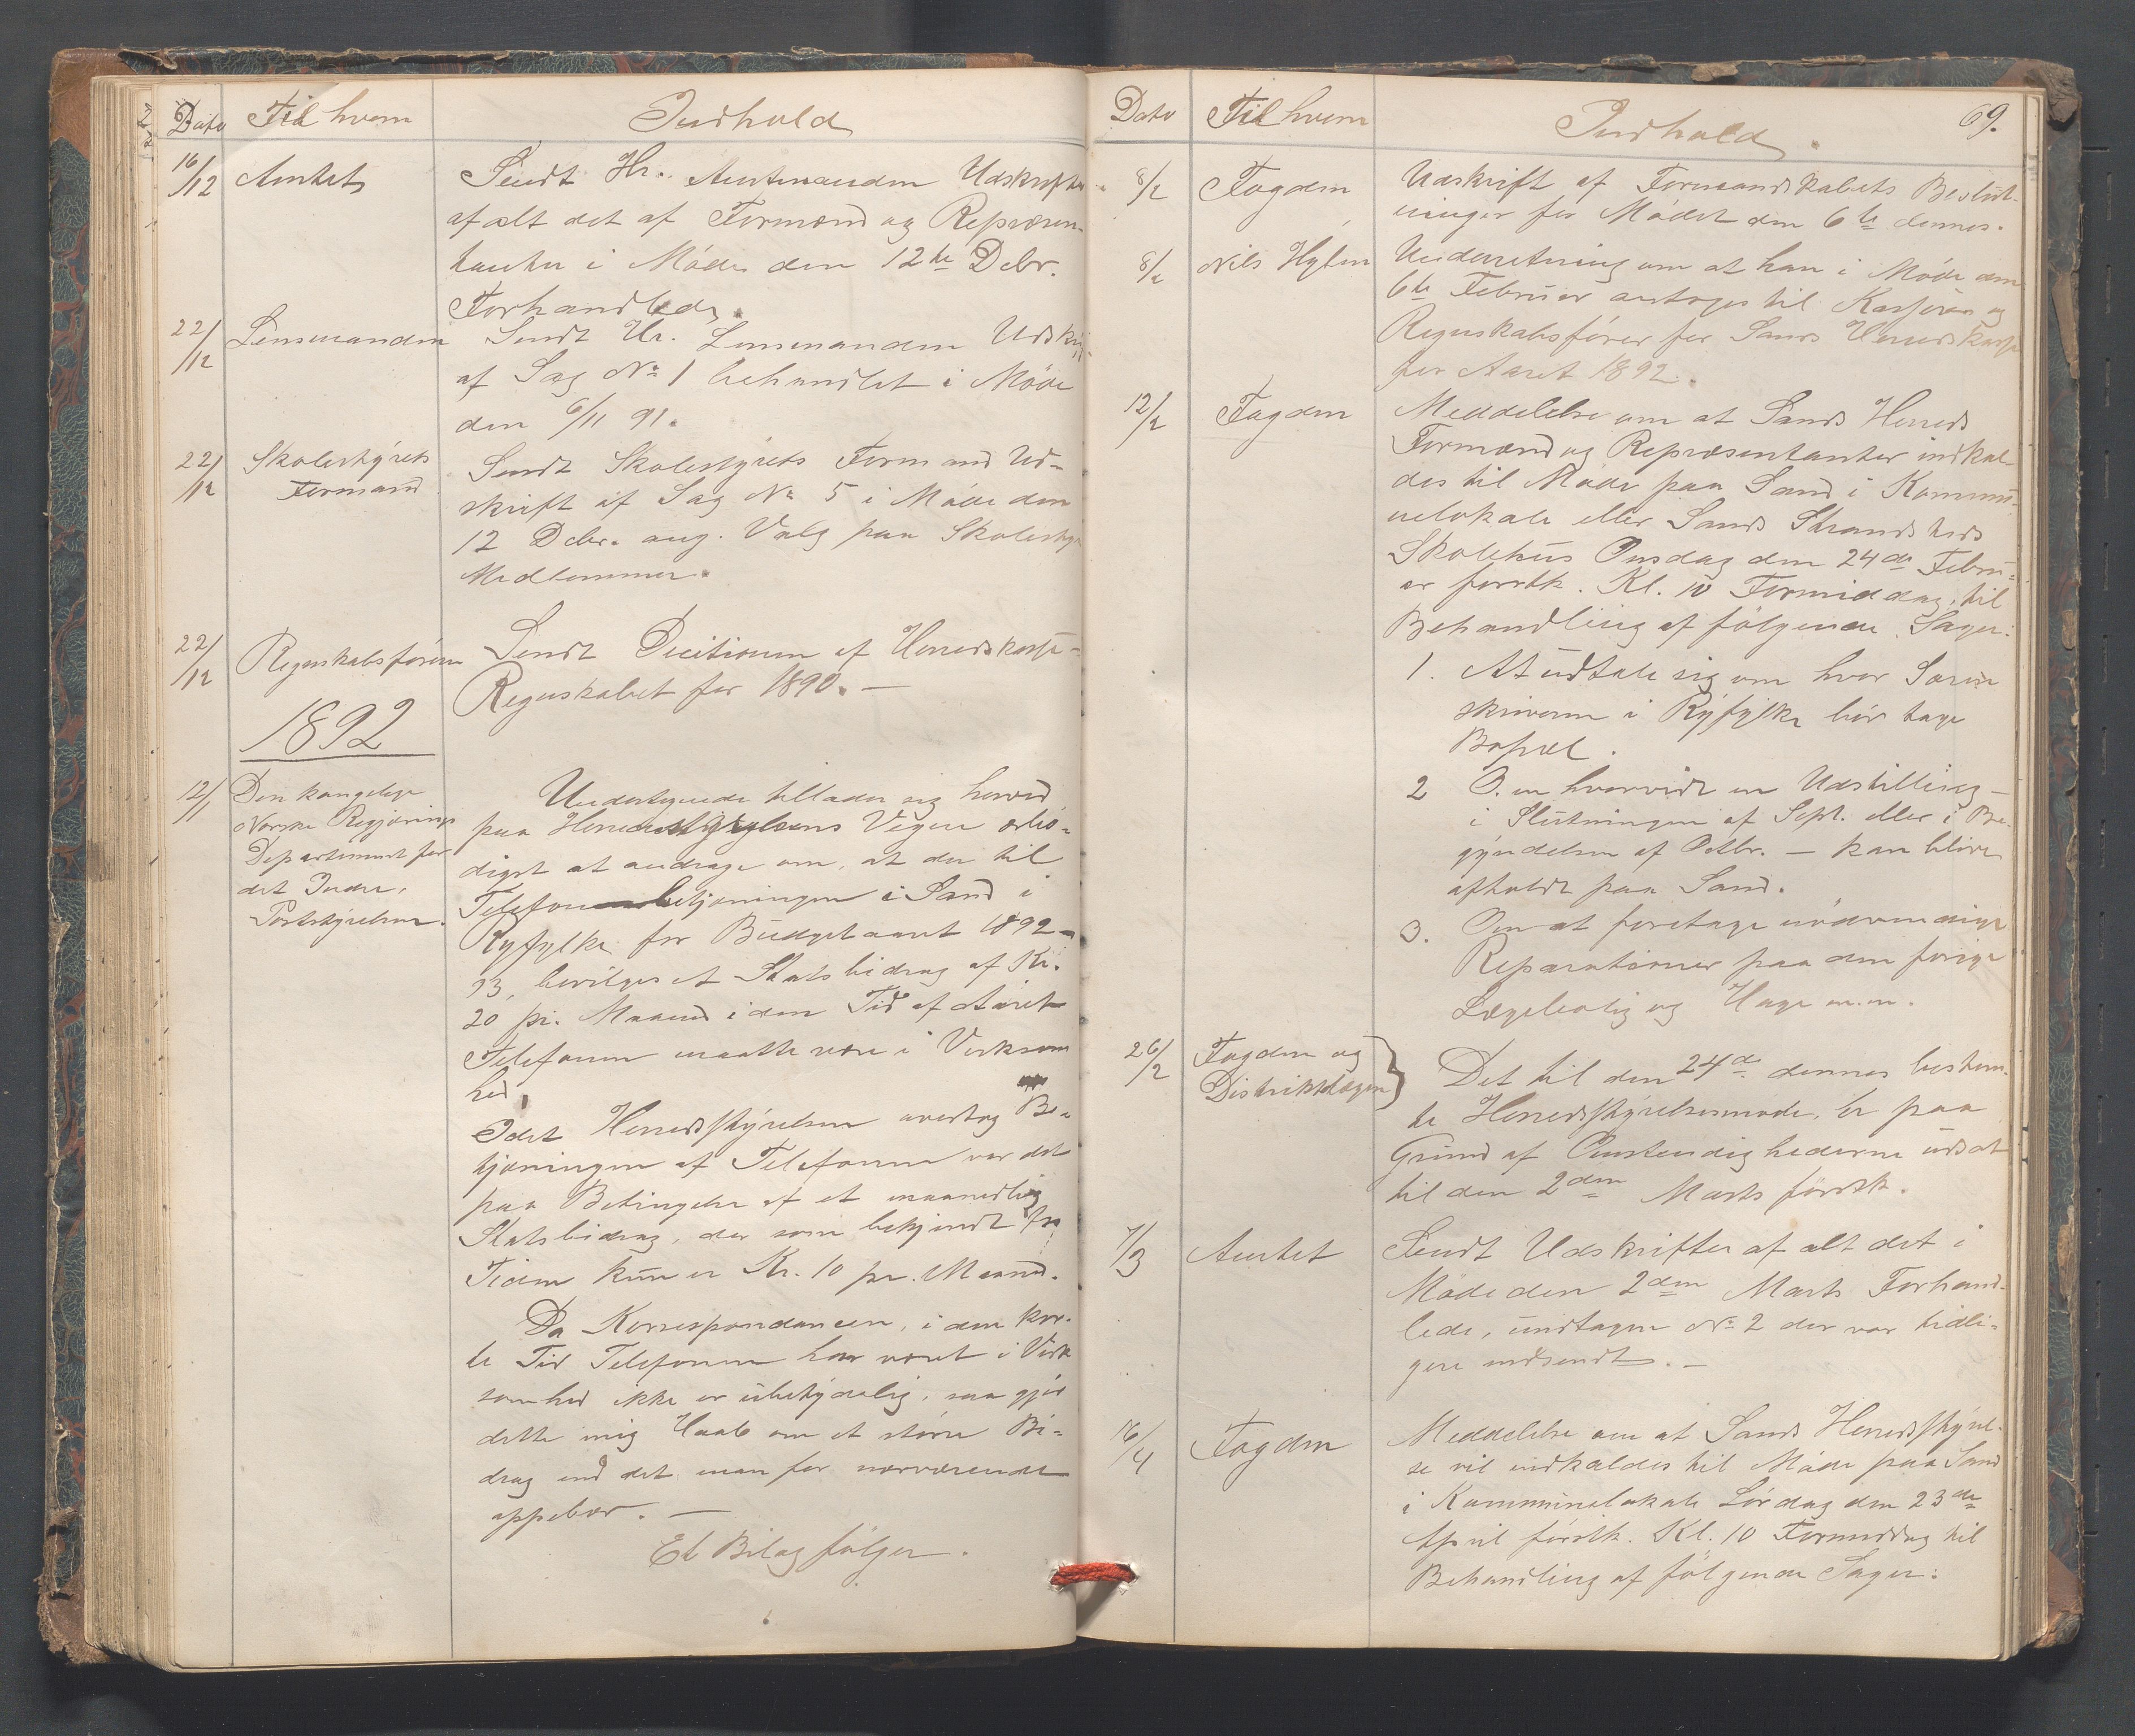 Dato Til hvem Indhold
16/12 Amtet Sendt Hr. Amtmanden Udskrifter
af alt det af Formænd og Repræsen-
tanter i Møde den 12te Debr.
Forhandlede.
22/12 Lensmanden Sendt Hr. Lensmanden Udskrift
af Sag No 1 behandlet i Møde
den 6/11 91.
22/12 Skolestyrets Formand Sendt Skolestyrets Formand Ud-
skrift af Sag No 5 i Møde den
12 Debr. ang. Valg paa Skolestyr
Medlemmer.
22/12 Regnskabsføreren Sendt Decitionen af Herredskasse-
Regnskabet for 1890. —
1892
12/1 Den kongelige
Norske Regjerings
Departement for
det Indre,
Poststyrelsen.
Undertegnede tillader sig herved
paa Herredstyrelsens Vegne ærbø-
digst at andrage om, at der til
Telefonbetjeningen i Sand i
Ryfylke for Budgetaaret 1892-
93, bevilges et Statsbidrag af Kr.
20 pr. Maaned i den Tid af Aaret
Telefonen maatte være i Virksom
hed,
Idet Herredsstyrelsen overtog Be-
tjeningen af Telefonen var det
paa Betingelse af et maanedlig
Statsbidrag, der som bekjendt for
Tiden kun er Kr. 10 pr. Maaned.
Da Korrespondancen, i den kor-
te Tid Telefonen har været i Virk
somhed ikke er ubetydelig, saa gjør
dette mig Haab om et større Bi-
drag end det man for nærværende
oppebær. —
Et Bilag følger.
Dato Til hvem Indhold. 69.
8/2 Fogden Udskrift af Formandskabets Beslut-
ninger for Mødet den 6te dennes.
8/2 Nils Hylen Underretning om at han i Møde den
6te Februar antoges til Kasserer og
Regnskabsfører for Sands Herredskasse
for Aaret 1892.
12/2 Fogden Meddelelse om at Sands Herreds
Formænd og Repræsentanter indkal-
des til Møde paa Sand i Kommu-
nelokale eller Sands Strandsteds
Skolehus Onsdag den 24de Febru-
ar førstk. Kl. 10 Formiddag, til
Behandling af følgende Sager:
1. At udtale sig om hvor Soren
skriveren i Ryfylke bør tage
Bopæl.
2 O. m hvorvidt en Udstilling —
i Slutningen af Sept. eller i Be-
gyndelsen af Octbr. — kan blive
afholdt paa Sand.
3. Om at foretage nødvendige
Reparationer paa den forige
Lægebolig og Hage m.m.
26/2 Fogden og
Distriktslægen } Det til den 24de dennes bestem-
te Herredsstyrelsesmøde, er paa
Grund af Omstendighederne udsat
til den 2den Marts førstk.
7/3 Amtet Sendt Udskrifter af alt det i
Møde den 2den Marts Forhand-
lede, undtagen No 2 der var tidli-
gere indsendt. —
16/4 Fogden Meddelelse om at Sands Herredsstyrel-
se vil indkaldes til Møde paa Sand
i Kommunelokale Lørdag den 23de
April førstk. Kl. 10 Formiddag til
Behandling af følgende Sager: